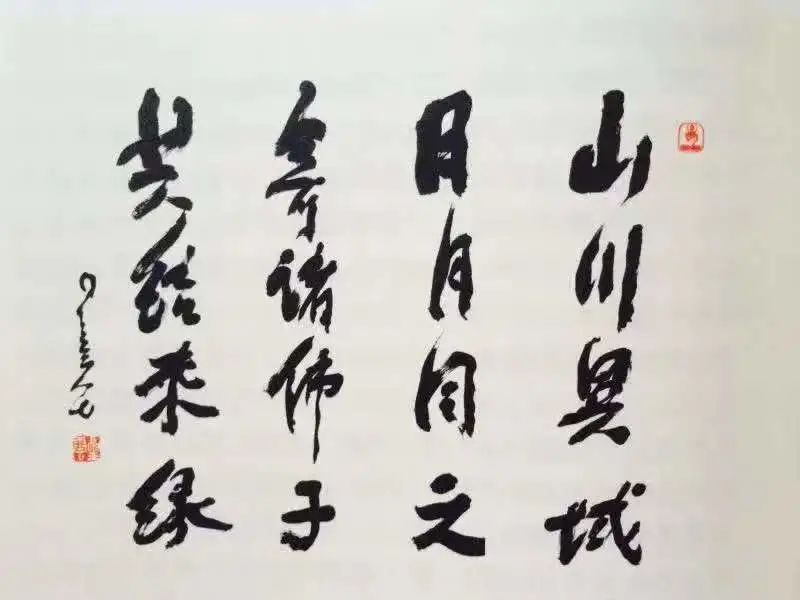 山川異域
日月同天
寄諸佛子
共結來緣